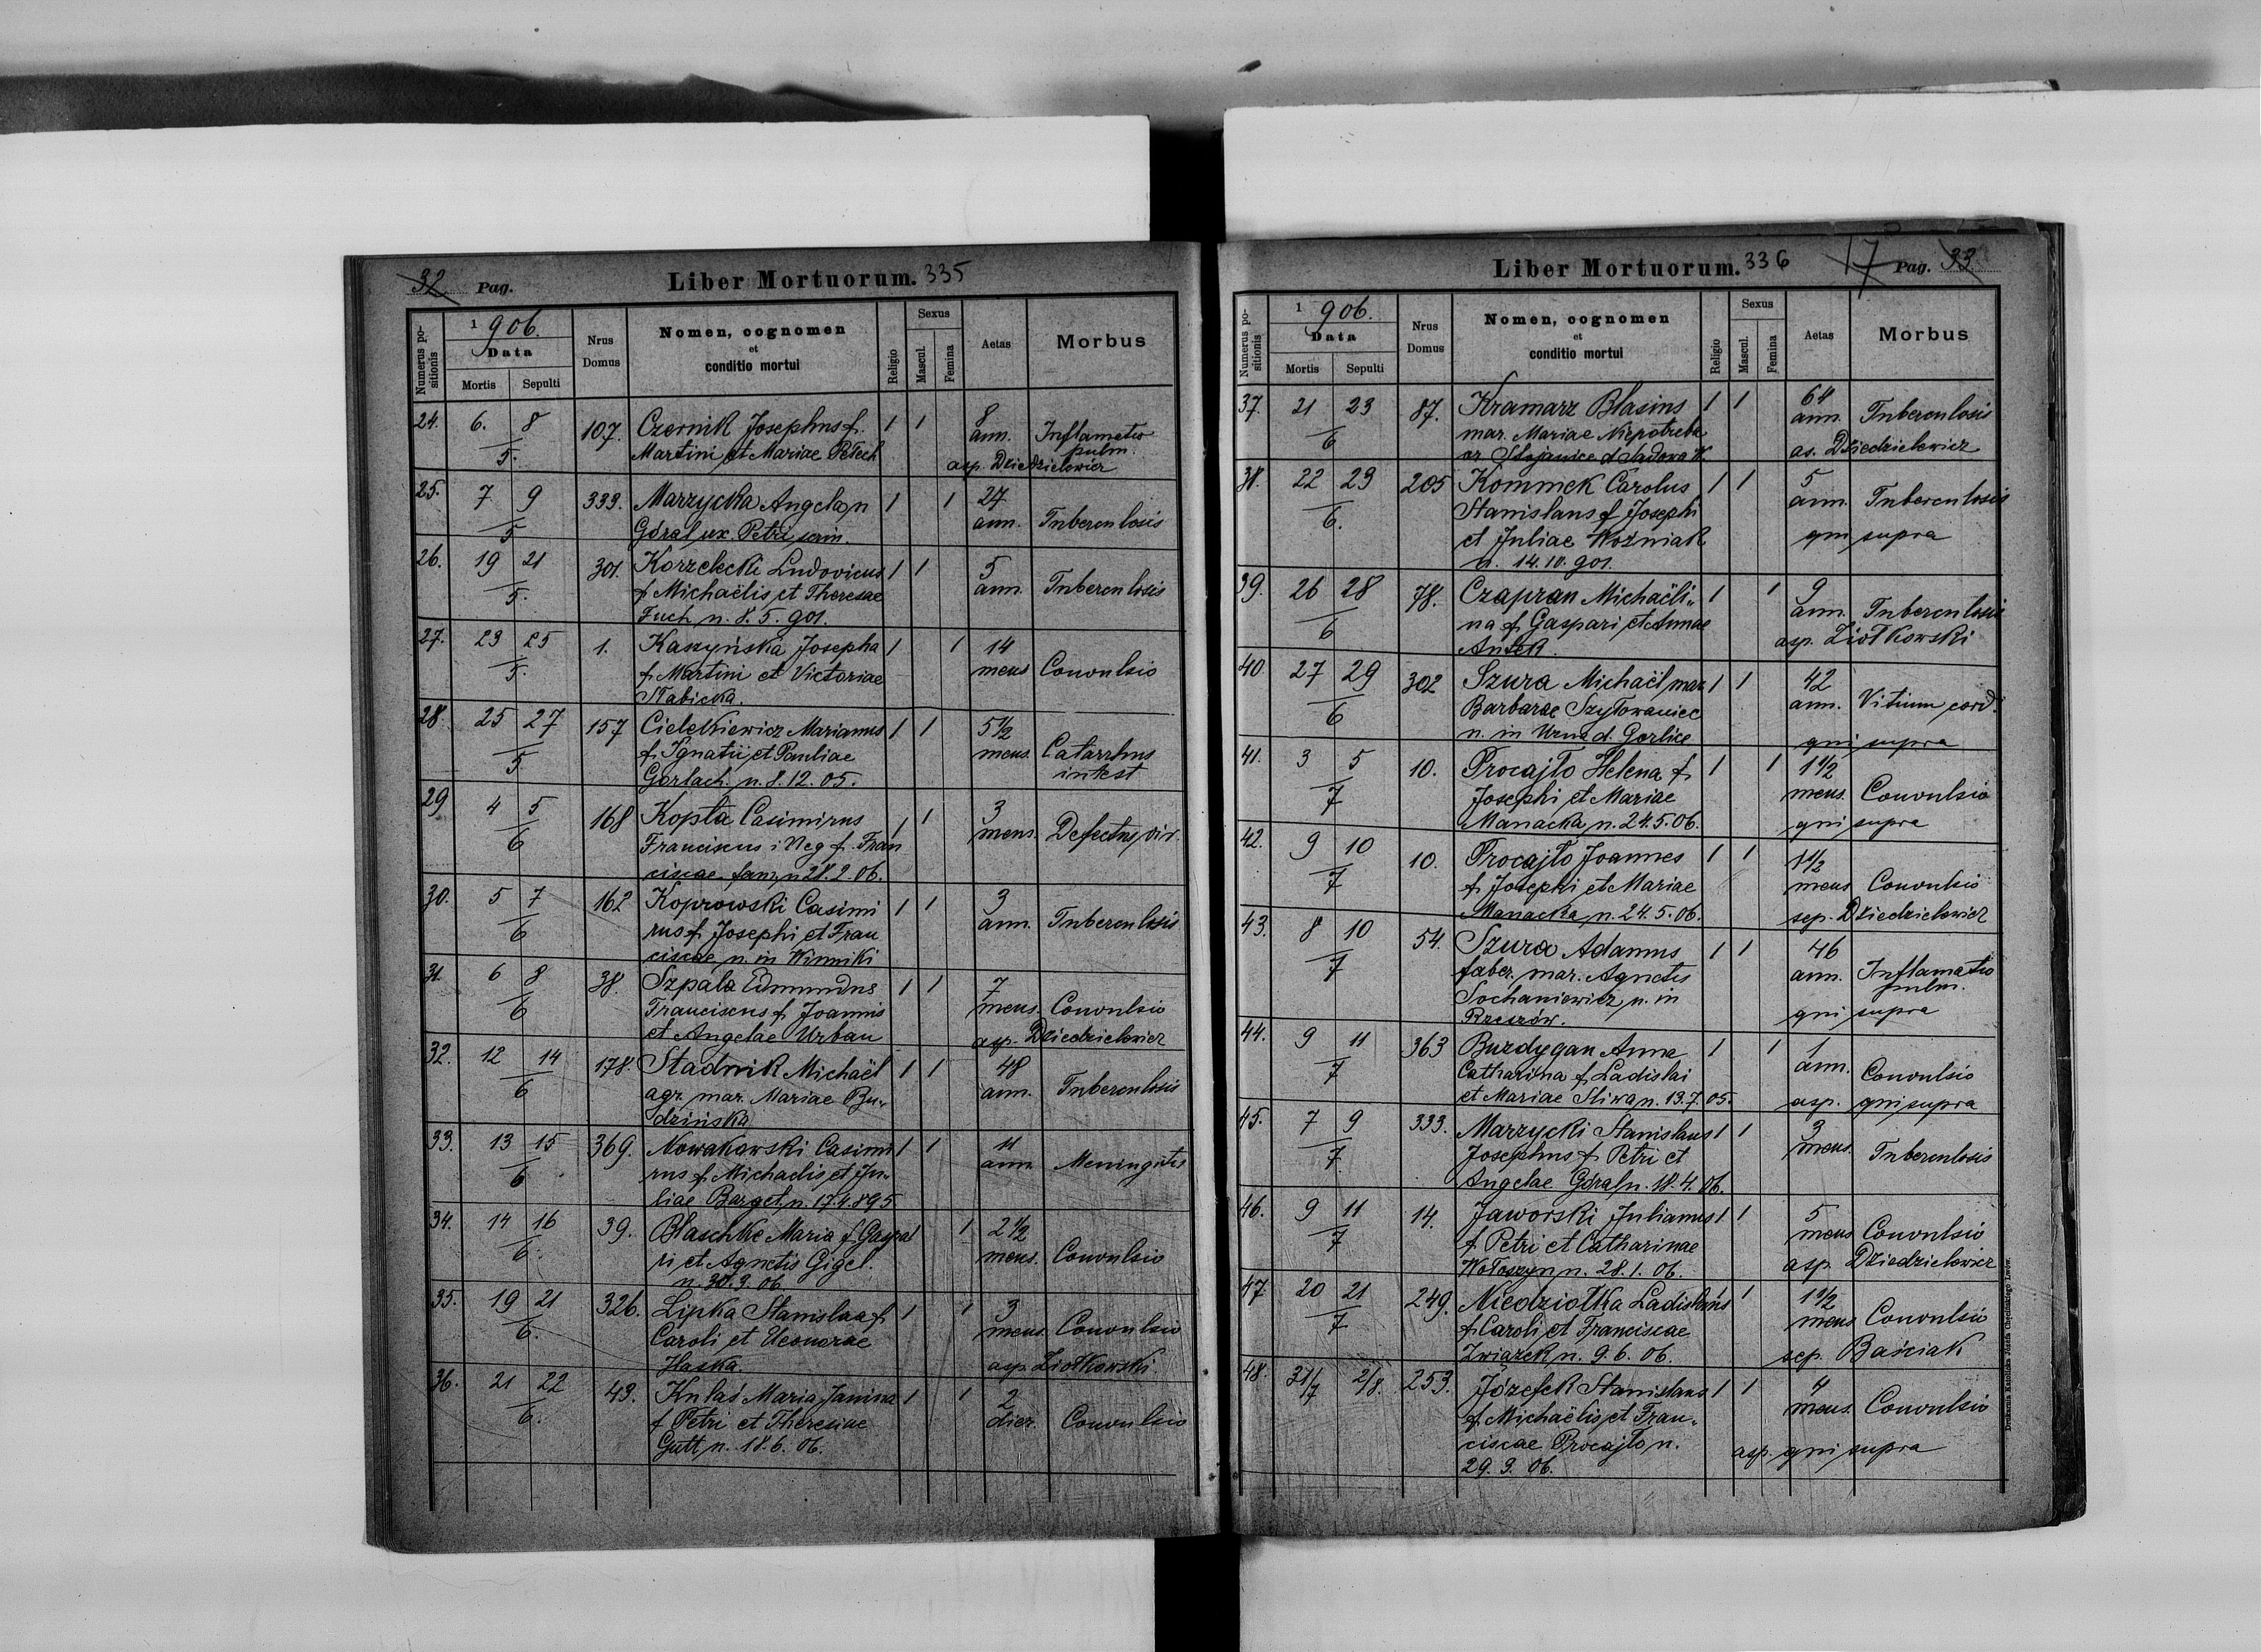 32. Pag. Liber Mortuorum. 335
Numerus positionis
1906.
Data
Mortis Sepulti
Nrus Domus
Nomen, cognomen
et
conditio mortui
Religio
Sexus
Mascul. Femina
Aetas
Morbus
24. 6. 8 107. Czernik Josephus f. 1 1 8
5. Martini et Mariae Pełech ann. Inflamatio pulm.
asp. Dziedzielewicz
25. 7 9 333. Marzycka Angela n 1 1 27
5 Góral ux. Petri ann. Tuberculosis
26. 19 21 301. Korzelecki Ludovicus 1 1 5
5. f Michaëlis et Theresae ann. Tuberculosis
Fuch n. 8. 5. 901.
27. 23 25 1. Kaszyńska Josepha 1 1 14
5. f. Martini et Victoriae mens Convulsio
Słabicka.
28. 25 27 157 Cielelkiewicz Marianus 1 1 5 1/2
5 f. Ignatii et Pauliae mens. Catarrhus
Gorlach. n. 8. 12. 05. intest
29 4 5 168 Kopta Casimirus 1 1 3
6 Franciscus i Neg f. Fran mens. Defectus vir.
ciscae fam, n 28. 2. 06.
30. 5 7 162 Koprowski Casimi 1 1 3
6 rus f. Josephi et Fran ann. Tuberculosis
ciscae n. in Winniki
31. 6 8 38. Szpala Edmundus 1 1 7
6 Franciscus f Joannis mens. Convulsio
et Angelae Urban asp. Dziedzielewicz
32. 12 14 178. Stadnik Michaël 1 1 48
6 agr. mar. Mariae Bu- ann. Tuberculosis
dzińska
33. 13 15 369. Nowakowski Casimi 1 1 11
6 rus f. Michaelis et Ju- ann. Meningitis
liae Barget, n. 17.4.895
34. 14 16 39. Blaschke Maria f. Gaspa 1 1 2 1/2
6. ri et Agnetis Gigel. mens. Convulsio
n. 30. 3. 06
35. 19 21 326. Lipka Stanislaa f 1 1 3
6. Caroli et Eleonorae mens. Convulsio
Haska. asp. Ziołkowski.
36. 21 22 43. Kulaś Maria Janina 1 1 2
6. f Petri et Theresiae dier. Convulsio
Gutt, n. 18. 6. 06.
Liber Mortuorum. 336 17 Pag. 33
Numerus positionis
1906.
Data
Mortis Sepulti
Nrus Domus
Nomen, cognomen
et
conditio mortui
Religio
Sexus
Mascul. Femina
Aetas
Morbus
37. 21 23 87. Kramarz Blasius 1 1 64
6 mar. Mariae Niepotreba ann. Tuberculosis
or Stojance d Sadowa W. as. Dziedzielewicz
38. 22 23 205 Kommek Carolus 1 1 5
6. Stanislaus f Josephi ann. Tuberculosis
et Juliae Woźniak qui supra
n. 14. 10. 901.
39. 26 28 78. Czapran Michaëli- 1 1 9
6 na f. Gaspari et Annae ann. Tuberculosis
Antek. asp. Ziołkowski
40. 27 29 302 Szura Michaël mar 1 1 42
6 Barbarae Szyłowaniec ann. Vitium cord.
n. in d. Gorlice qui supra
41. 3 5 10. Procajło Helena f 1 1 1 1/2
7 Josephi et Mariae mens. Convulsio
Manacka n. 24. 5. 06. qui supra
42. 9 10 10. Procajło Joannes 1 1 1 1/2
7 f. Josephi et Mariae mens Convulsio
Manacka, n. 24. 5. 06. sep. Dziedzielewicz
43. 8 10 54. Szura Adamus 1 1 46
7 faber. mar. Agnetis ann. Inflamatio pulm.
Sochaniewicz n. in qui supra
Rzeszów.
44. 9 11 363 Burdygan Anna 1 1 1
7 Catharina f Ladislai ann. Convulsio
et Mariae Sliwa n. 13. 7. 05. asp. qui supra
45. 7 9 333. Marzycki Stanislaus 1 1 3
7. Josephus f Petri et mens. Tuberculosis
Angelae Góral n. 18. 4. 06.
46. 9 11 14. Jaworski Julianus 1 1 5
7 f Petri et Catharinae mens Convulsio
Wołoszyn n. 28. 1. 06. asp. Dziedzielewicz
47 20 21 249. Niedziołka Ladislaus 1 1 1 1/2
7 f. Caroli et Franciscae mens Convulsio
Związek, n. 9. 6. 06. sep. Baściak
48. 31/7 2/8. 253. Józefek Stanislaus 1 1 4
f. Michaëlis et Fran- mens. Convulsio
ciscae Procajło n. asp. qui supra
29. 3. 06.
Drukarnia Katolicka Józefa Chęcińskiego Lwów.